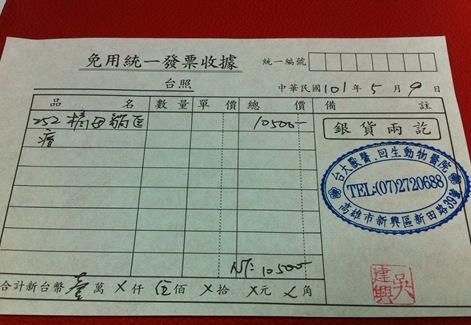 免用統一發票收據
統一編號
台照
中華民國101年5月9日
品名 數量 單價 總價 備註
252 橘母貓區 10500-
瘤
銀貨兩訖
台大獸醫.回生動物醫院
TEL:(07)2720688
高雄市新興區新田路39號
NT: 10500-
合計新台幣壹萬X仟伍佰X拾X元X角
吳建興